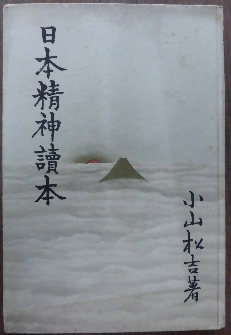 日本精神讀本
小山松吉著